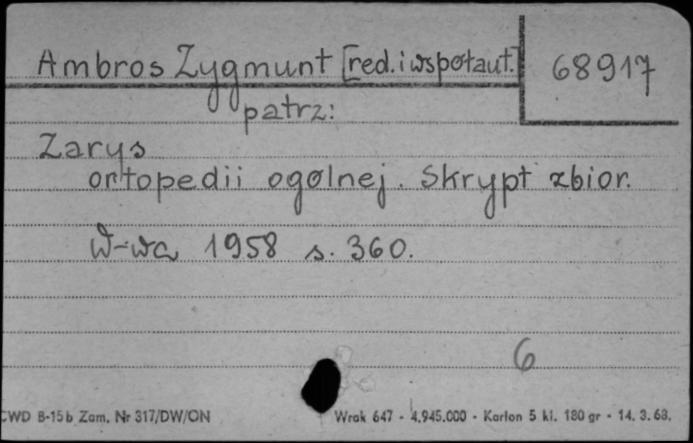 Ambros Zygmunt [red. i współaut.]
68917
patrz:
Zarys
ortopedii ogólnej. Skrypt zbior.
W-wa 1958 s. 360.
6
CWD B-15b Zam. Nr 317/DW/ON
Wrak 647 - 4.945.000 - Karton 5 kl. 180 gr - 14. 3. 68.